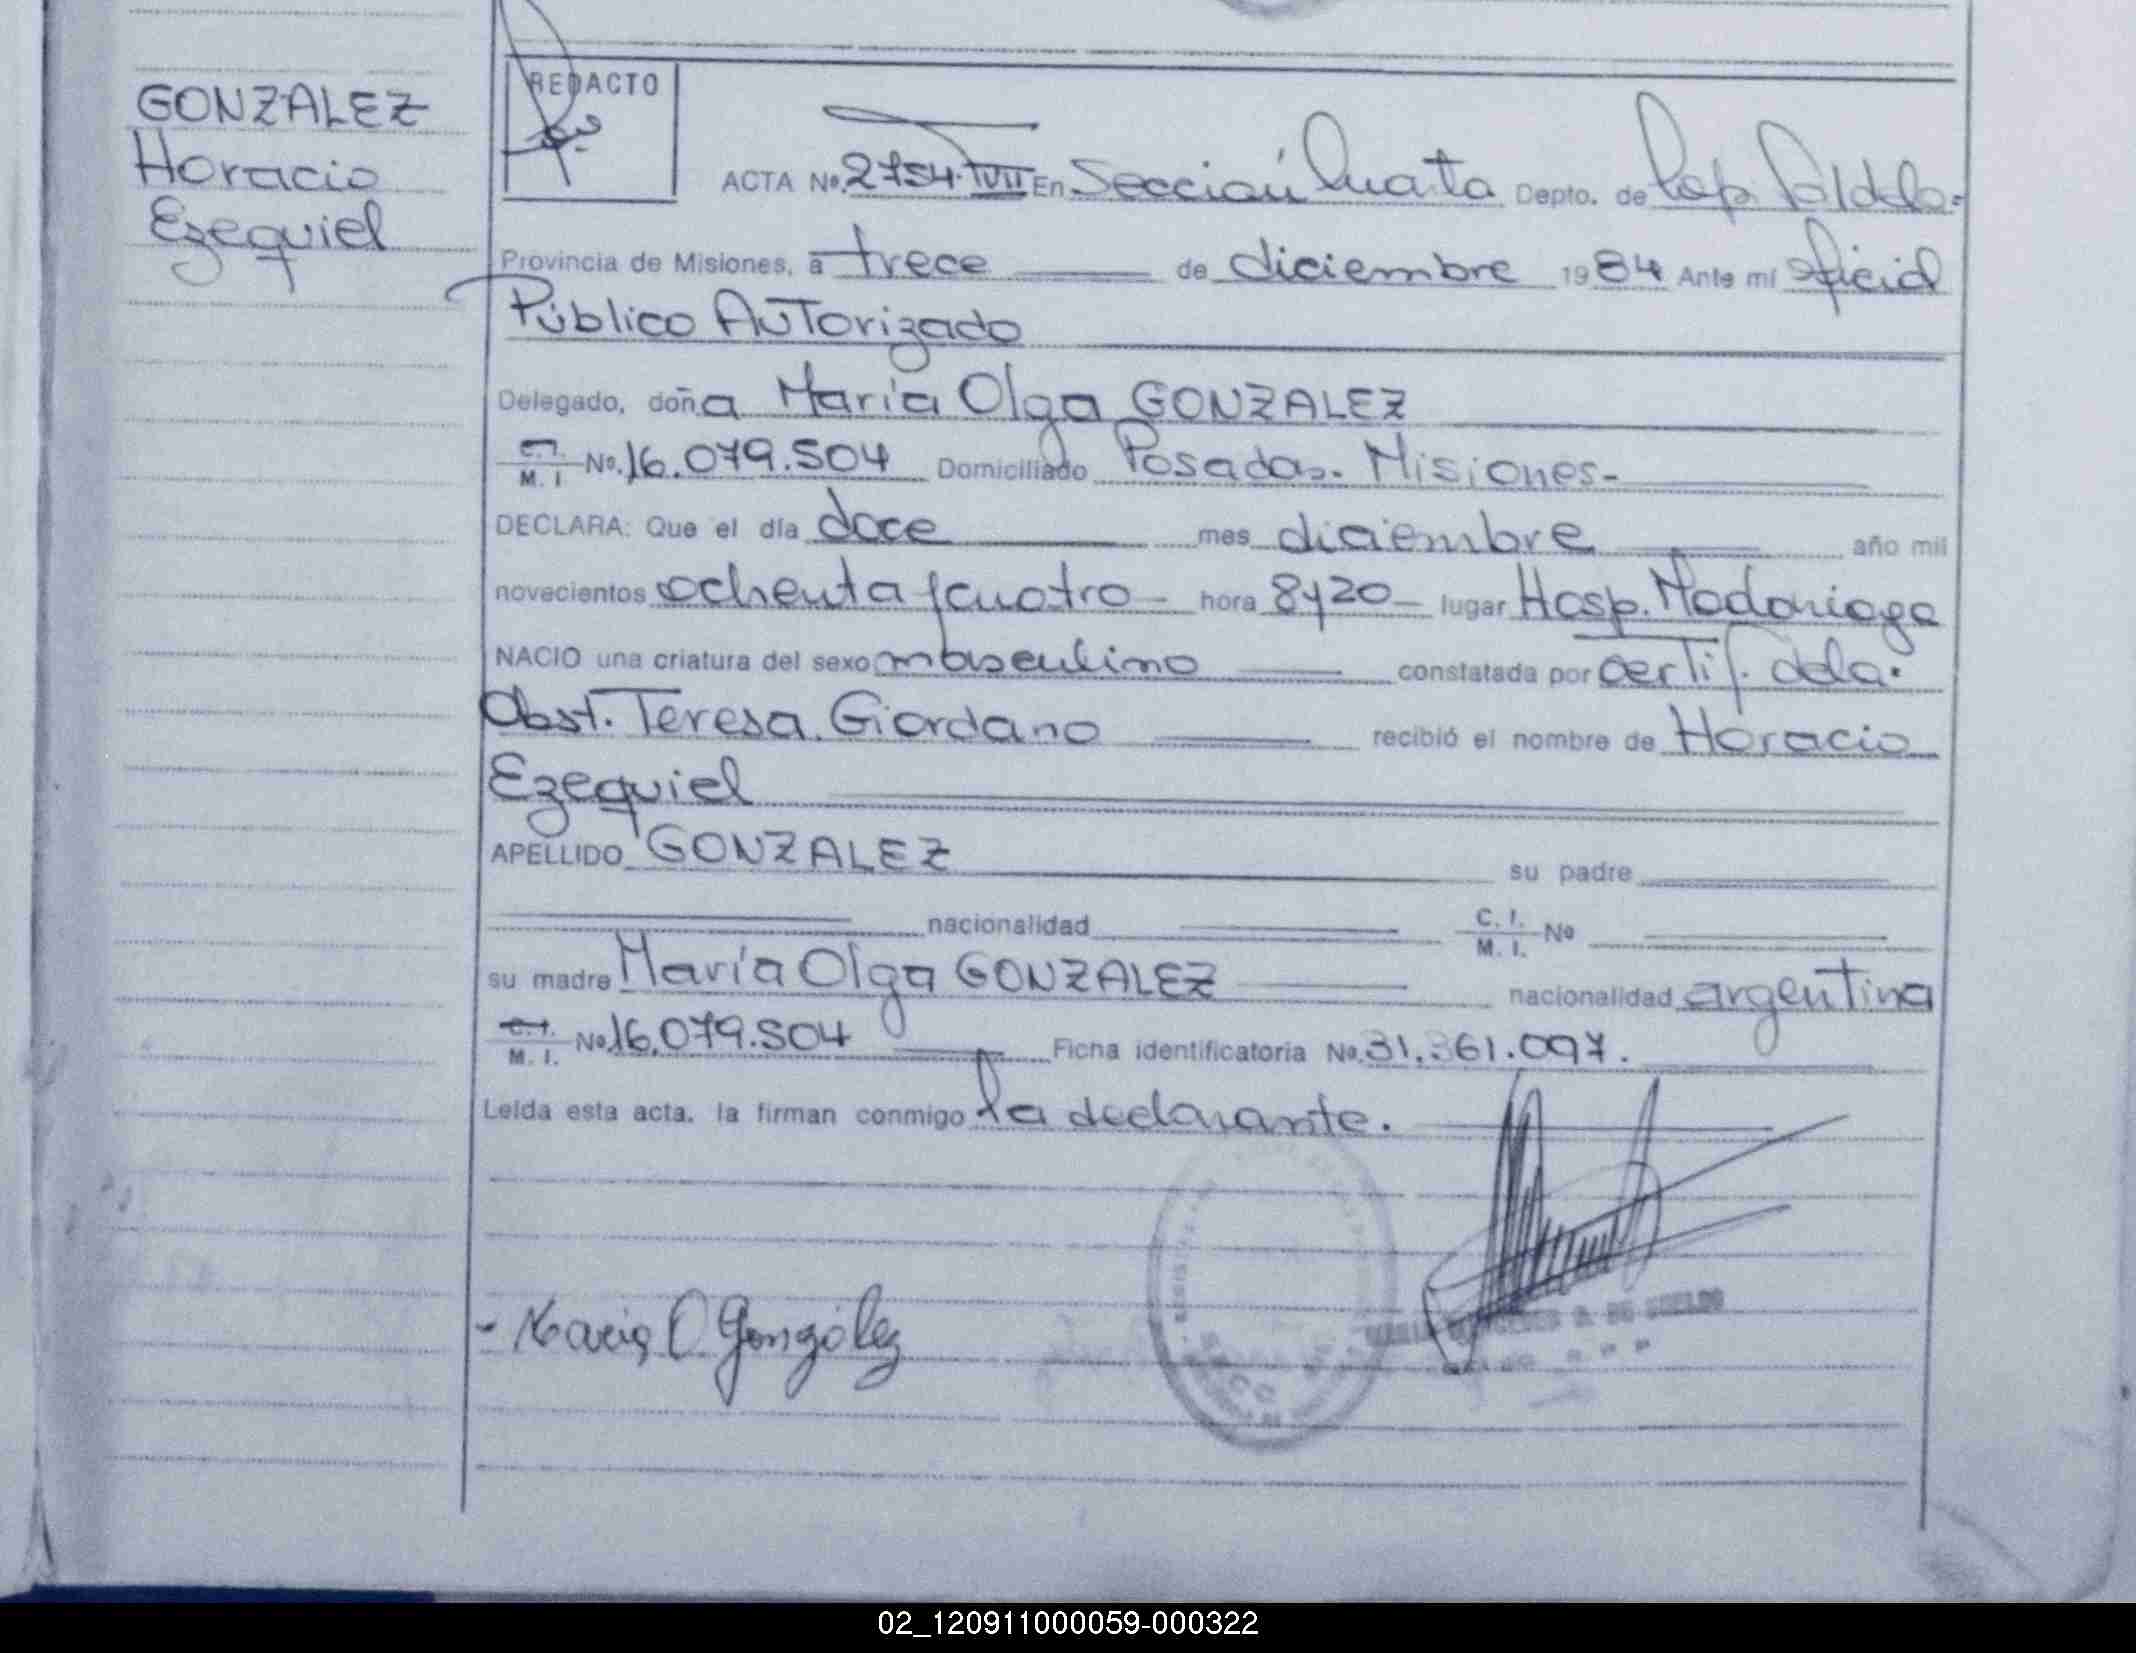 GONZALEZ
Horacio
Ezequiel
REDACTO
ACTA No. 2754. TVII En Sección Cuarta Depto. de Cap. Caldelo.
Provincia de Misiones, a trece de diciembre 1984 Ante mí oficial
Público Autorizado
Delegado, doña María Olga GONZALEZ
C.I. M. I No. 16.079.504 Domiciliado Posadas. Misiones-
DECLARA: Que el día doce mes diciembre año mil
novecientos ochenta y cuatro - hora 8y20 - lugar Hosp. Madariaga
NACIO una criatura del sexo masculino constatada por certif. dela.
Obst. Teresa Giordano recibió el nombre de Horacio
Ezequiel
APELLIDO GONZALEZ su padre
nacionalidad C. I. M. I. No
su madre María Olga GONZALEZ nacionalidad argentina
C.I. M. I. No 16.079.504 Ficha identificatoria No. 31.361.097.
Leída esta acta, la firman conmigo la declarante.
- Maria O. González
02_120911000059-000322